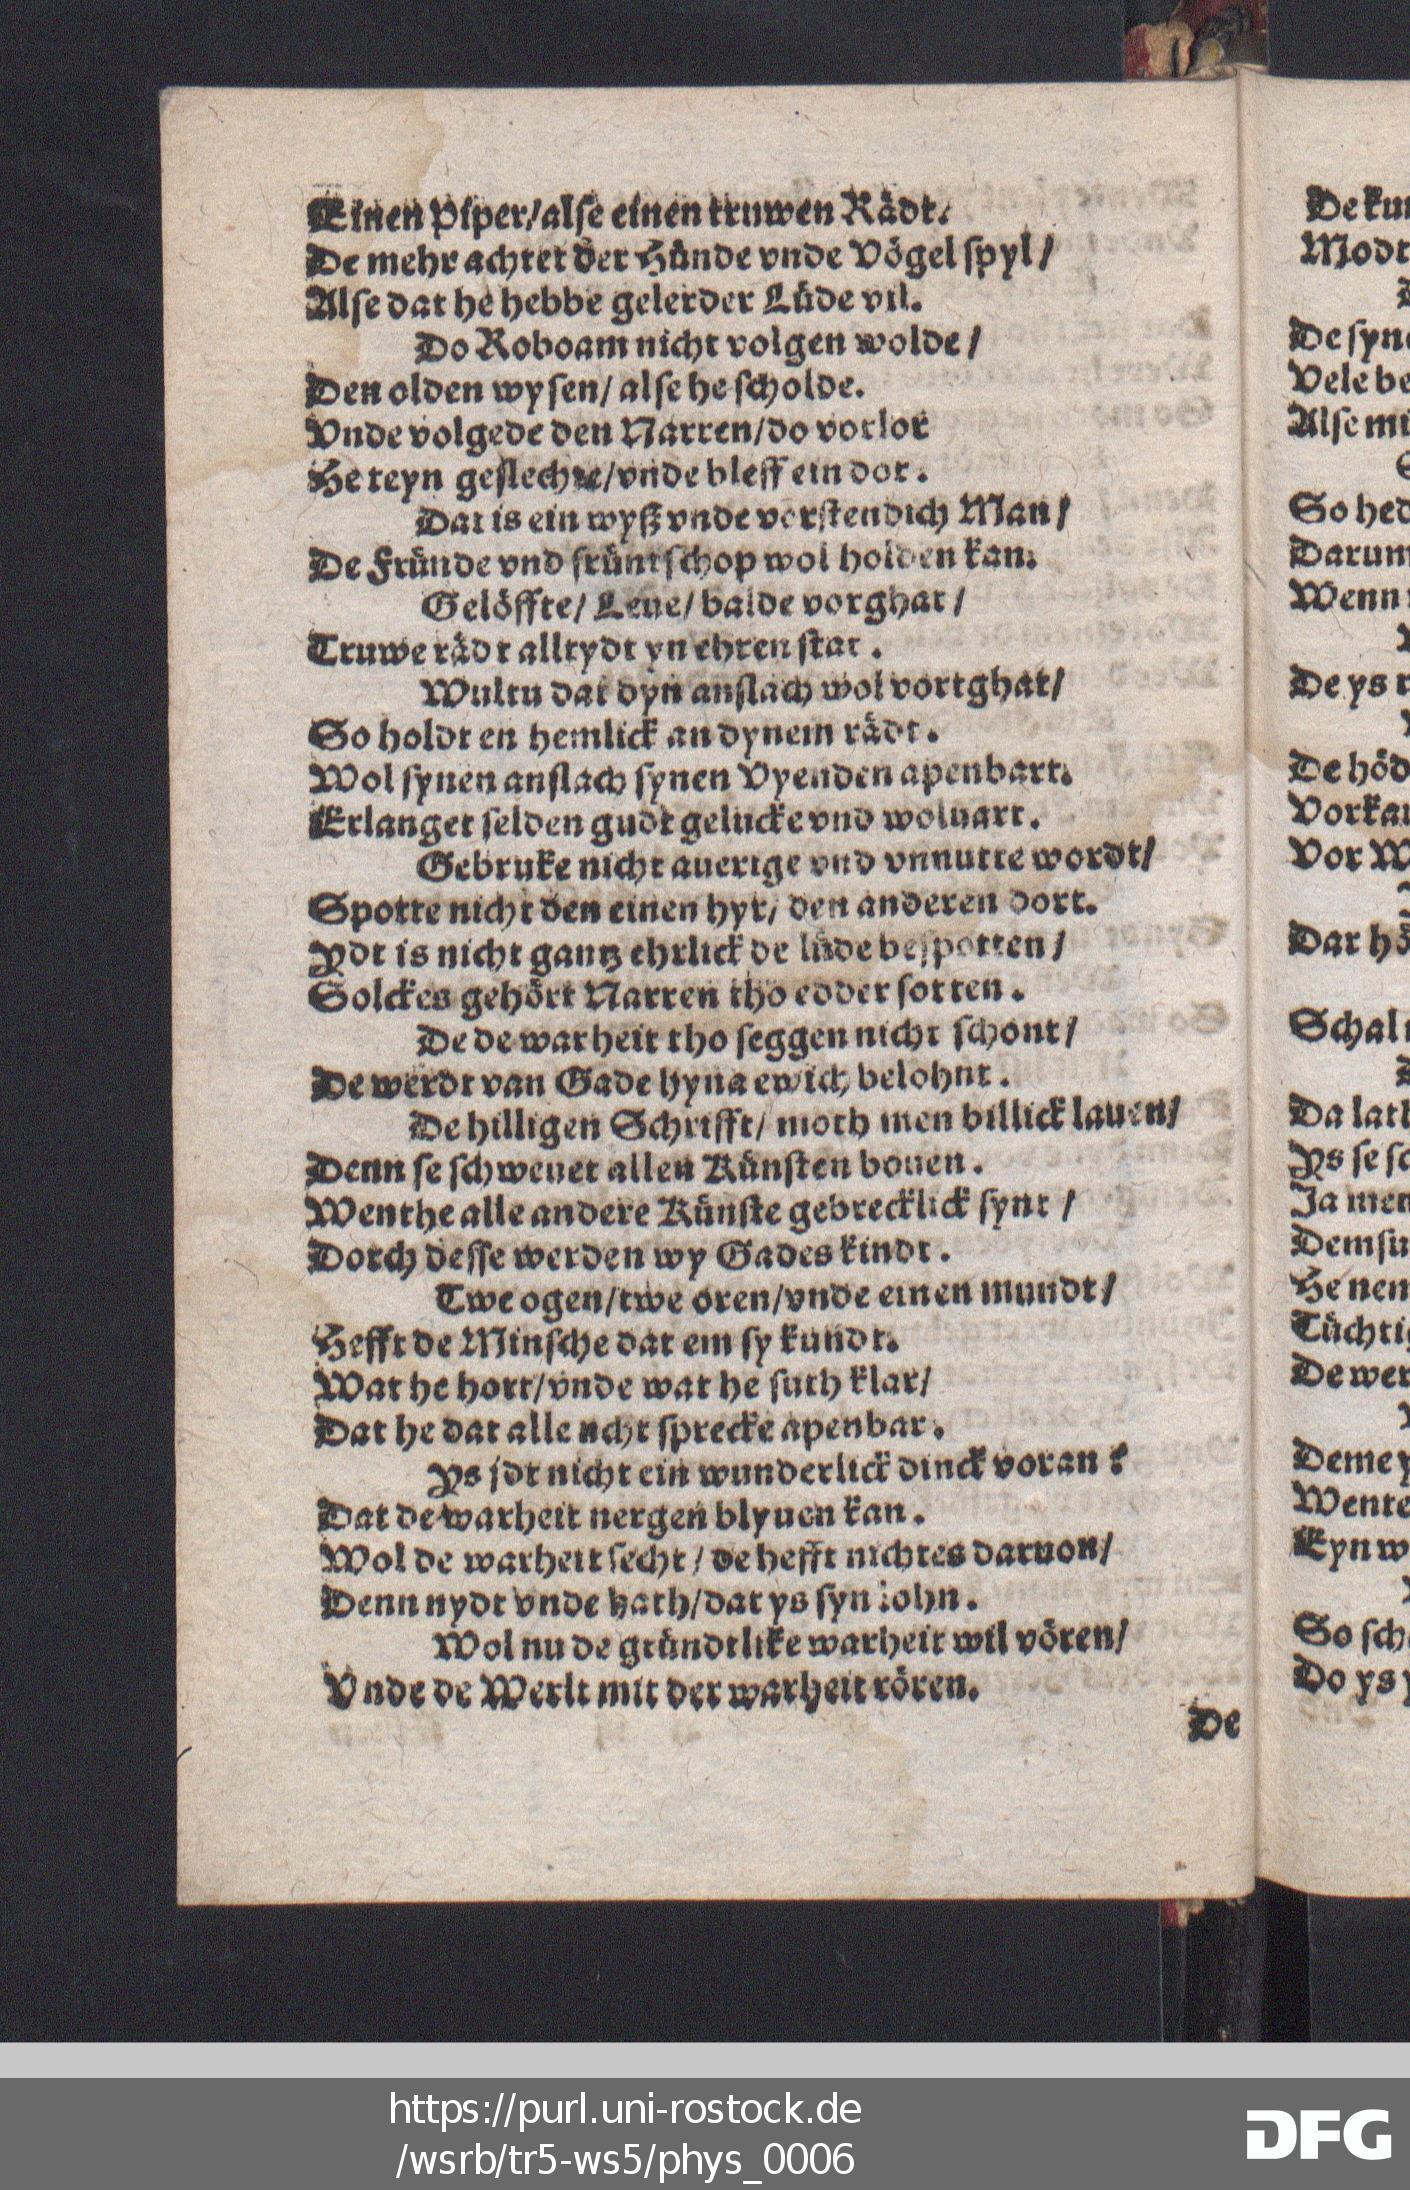 Einen Piper/ alse einen truwen Rädt.
De mehr achtet der Hünde vnde Vögel spyl/
Alse dat he hebbe gelerder Lüde vil.
Do Roboam nicht volgen wolde/
Den olden wysen/ alse he scholde.
Vnde volgede den Narren/ do vorlor
He teyn geslechte/ vnde bleff ein dor.
Dat is ein wyß vnde vorstendich Man/
De Fründe vnd früntschop wol holden kan.
Gelöffte/ Leue/ balde vorghat/
Truwe rädt alltydt yn ehren stat.
Wultu dat dyn anslach wol vortghat/
So holdt en hemlick an dynem rädt.
Wol synen anslach synen Vyenden apenbart.
Erlanget selden gudt gelucke vnd woluart.
Gebruke nicht auerige vnd vnnutte wordt/
Spotte nicht den einen hyr/ den anderen dort.
Ydt is nicht gantz ehrlick de lüde bespotten/
Solckes gehört Narren tho edder sotten.
De de warheit tho seggen nicht schont/
De werdt van Gade hyna ewich belohnt.
De hilligen Schrifft/ moth men billick lauen/
Denn se schweuet allen Künsten bouen.
Wenthe alle andere Künste gebrecklick synt/
Dorch desse werden wy Gades kindt.
Twe ogen/ twe oren/ vnde einen mundt/
Hefft de Minsche dat em sy kundt.
Wat he hort/ vnde wat he suth klar/
Dat he dat alle ncht sprecke apenbar.
Ys jdt nicht ein wunderlick dinck voran?
Dat de warheit nergen blyuen kan.
Wol de warheit secht/ de hefft nichtes daruon/
Denn nydt vnde hath/ dat ys syn lohn.
Wol nu de gründtlike warheit wil vören/
Vnde de Werlt mit der warheit rören.
De
De kun
Modt
De syn
Vele be
Alse mi
So hed
Darum
Wenn
De ys
De höd
Vorkau
Vor W
Dat hö
Schal
Da lath
Ys se sc
Ja men
Demsu
He nem
Tüchtig
De wer
Deme y
Wente
Eyn w
So sch
Do ys
https://purl.uni-rostock.de
/wsrb/tr5-ws5/phys_0006
DFG